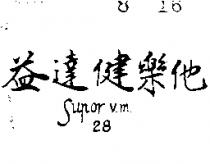 8 16
益達健樂他
Supor v.m.
28